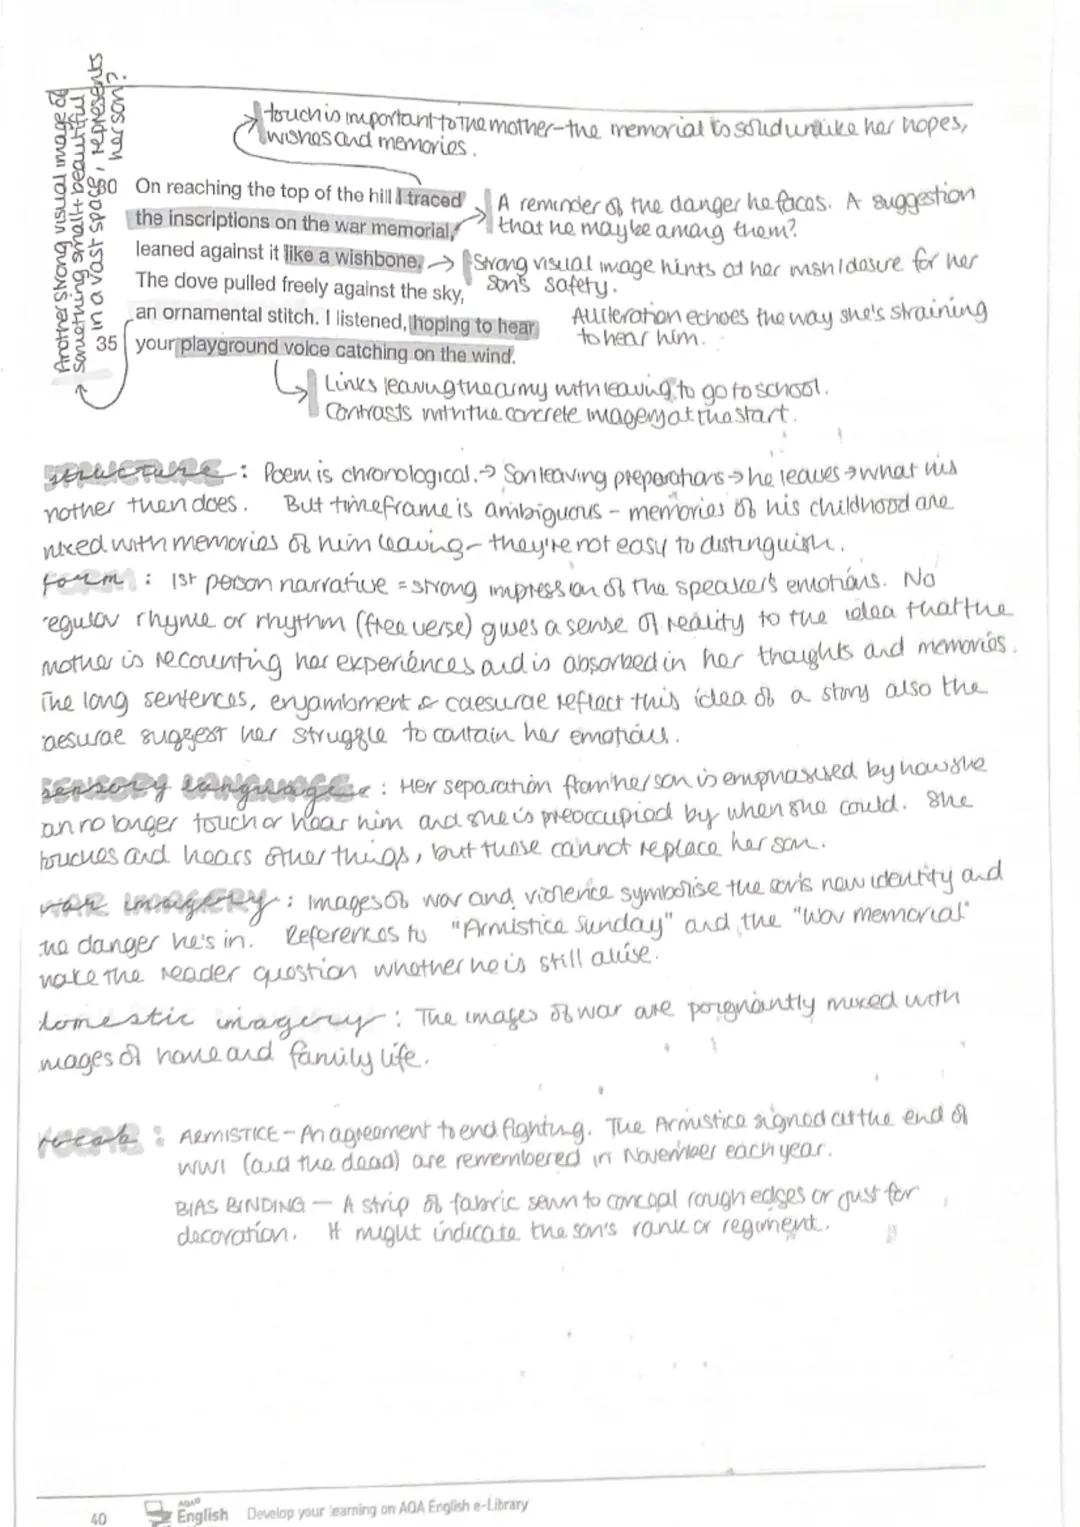 Another strong visual image of
something small + beautiful
in a vast space, represents
her son?
touch is important to the mother - the memorial is solid unlike her hopes,
wishes and memories.
30 On reaching the top of the hill I traced
the inscriptions on the war memorial,
A reminder of the danger he faces. A suggestion
that he maybe among them?
leaned against it like a wishbone.
Strong visual image hints at her wish/desire for her
son's safety.
The dove pulled freely against the sky,
an ornamental stitch. I listened, hoping to hear
35 your playground voice catching on the wind.
Alliteration echoes the way she's straining
to hear him.
Links leaving the army with leaving to go to school.
Contrasts with the concrete imagery at the start.
structure : Poem is chronological. → Son leaving preparations → he leaves → what his
nother then does. But timeframe is ambiguous - memories of his childhood are
mixed with memories of him leaving - they're not easy to distinguish.
form : 1st person narrative = strong impression of the speaker's emotions. No
egular rhyme or rhythm (free verse) gives a sense of reality to the idea that the
mother is recounting her experiences and is absorbed in her thoughts and memories.
The long sentences, enjambment & caesurae reflect this idea of a story also the
aesurae suggest her struggle to contain her emotions.
sensory language : Her separation from her son is emphasised by how she
an no longer touch or hear him and she is preoccupied by when she could. She
touches and hears other things, but these cannot replace her son.
war imagery : Images of war and violence symbolise the son's new identity and
the danger he's in. References to "Armistice Sunday" and the "war memorial"
make the reader question whether he is still alive.
domestic imagery : The images of war are poignantly mixed with
images of home and family life.
vocab : ARMISTICE - An agreement to end fighting. The Armistice signed at the end of
WW1 (and the dead) are remembered in November each year.
BIAS BINDING - A strip of fabric sewn to conceal rough edges or just for
decoration. It might indicate the son's rank or regiment.
40 AQA English Develop your learning on AQA English e-Library